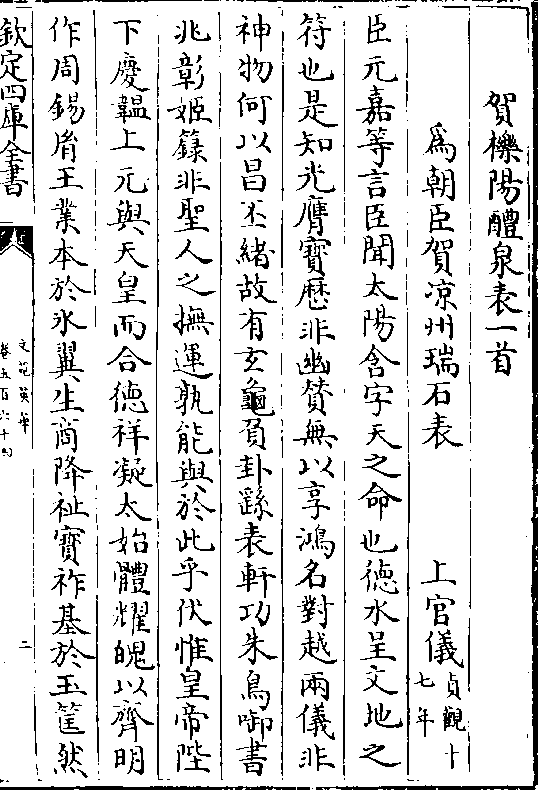 賀櫟陽醴泉表一首
為朝臣賀凉州瑞石表　上官儀貞觀十七年
臣元嘉等言臣聞太陽含字天之命也德水呈文地之
符也是知光膺寶厯非幽贊無以享鴻名對越兩儀非
神物何以昌丕緒故有玄龜負卦繇表軒功朱鳥啣書
兆彰姬籙非聖人之撫運孰能與於此乎伏惟皇帝陛
下慶韞上元與天皇而合德祥凝太始體耀魄以齊明
作周錫胤王業本於氷翼生商降祉寶祚基於玉筐然
欽定四庫全書
文苑英華
卷五百六十四
二